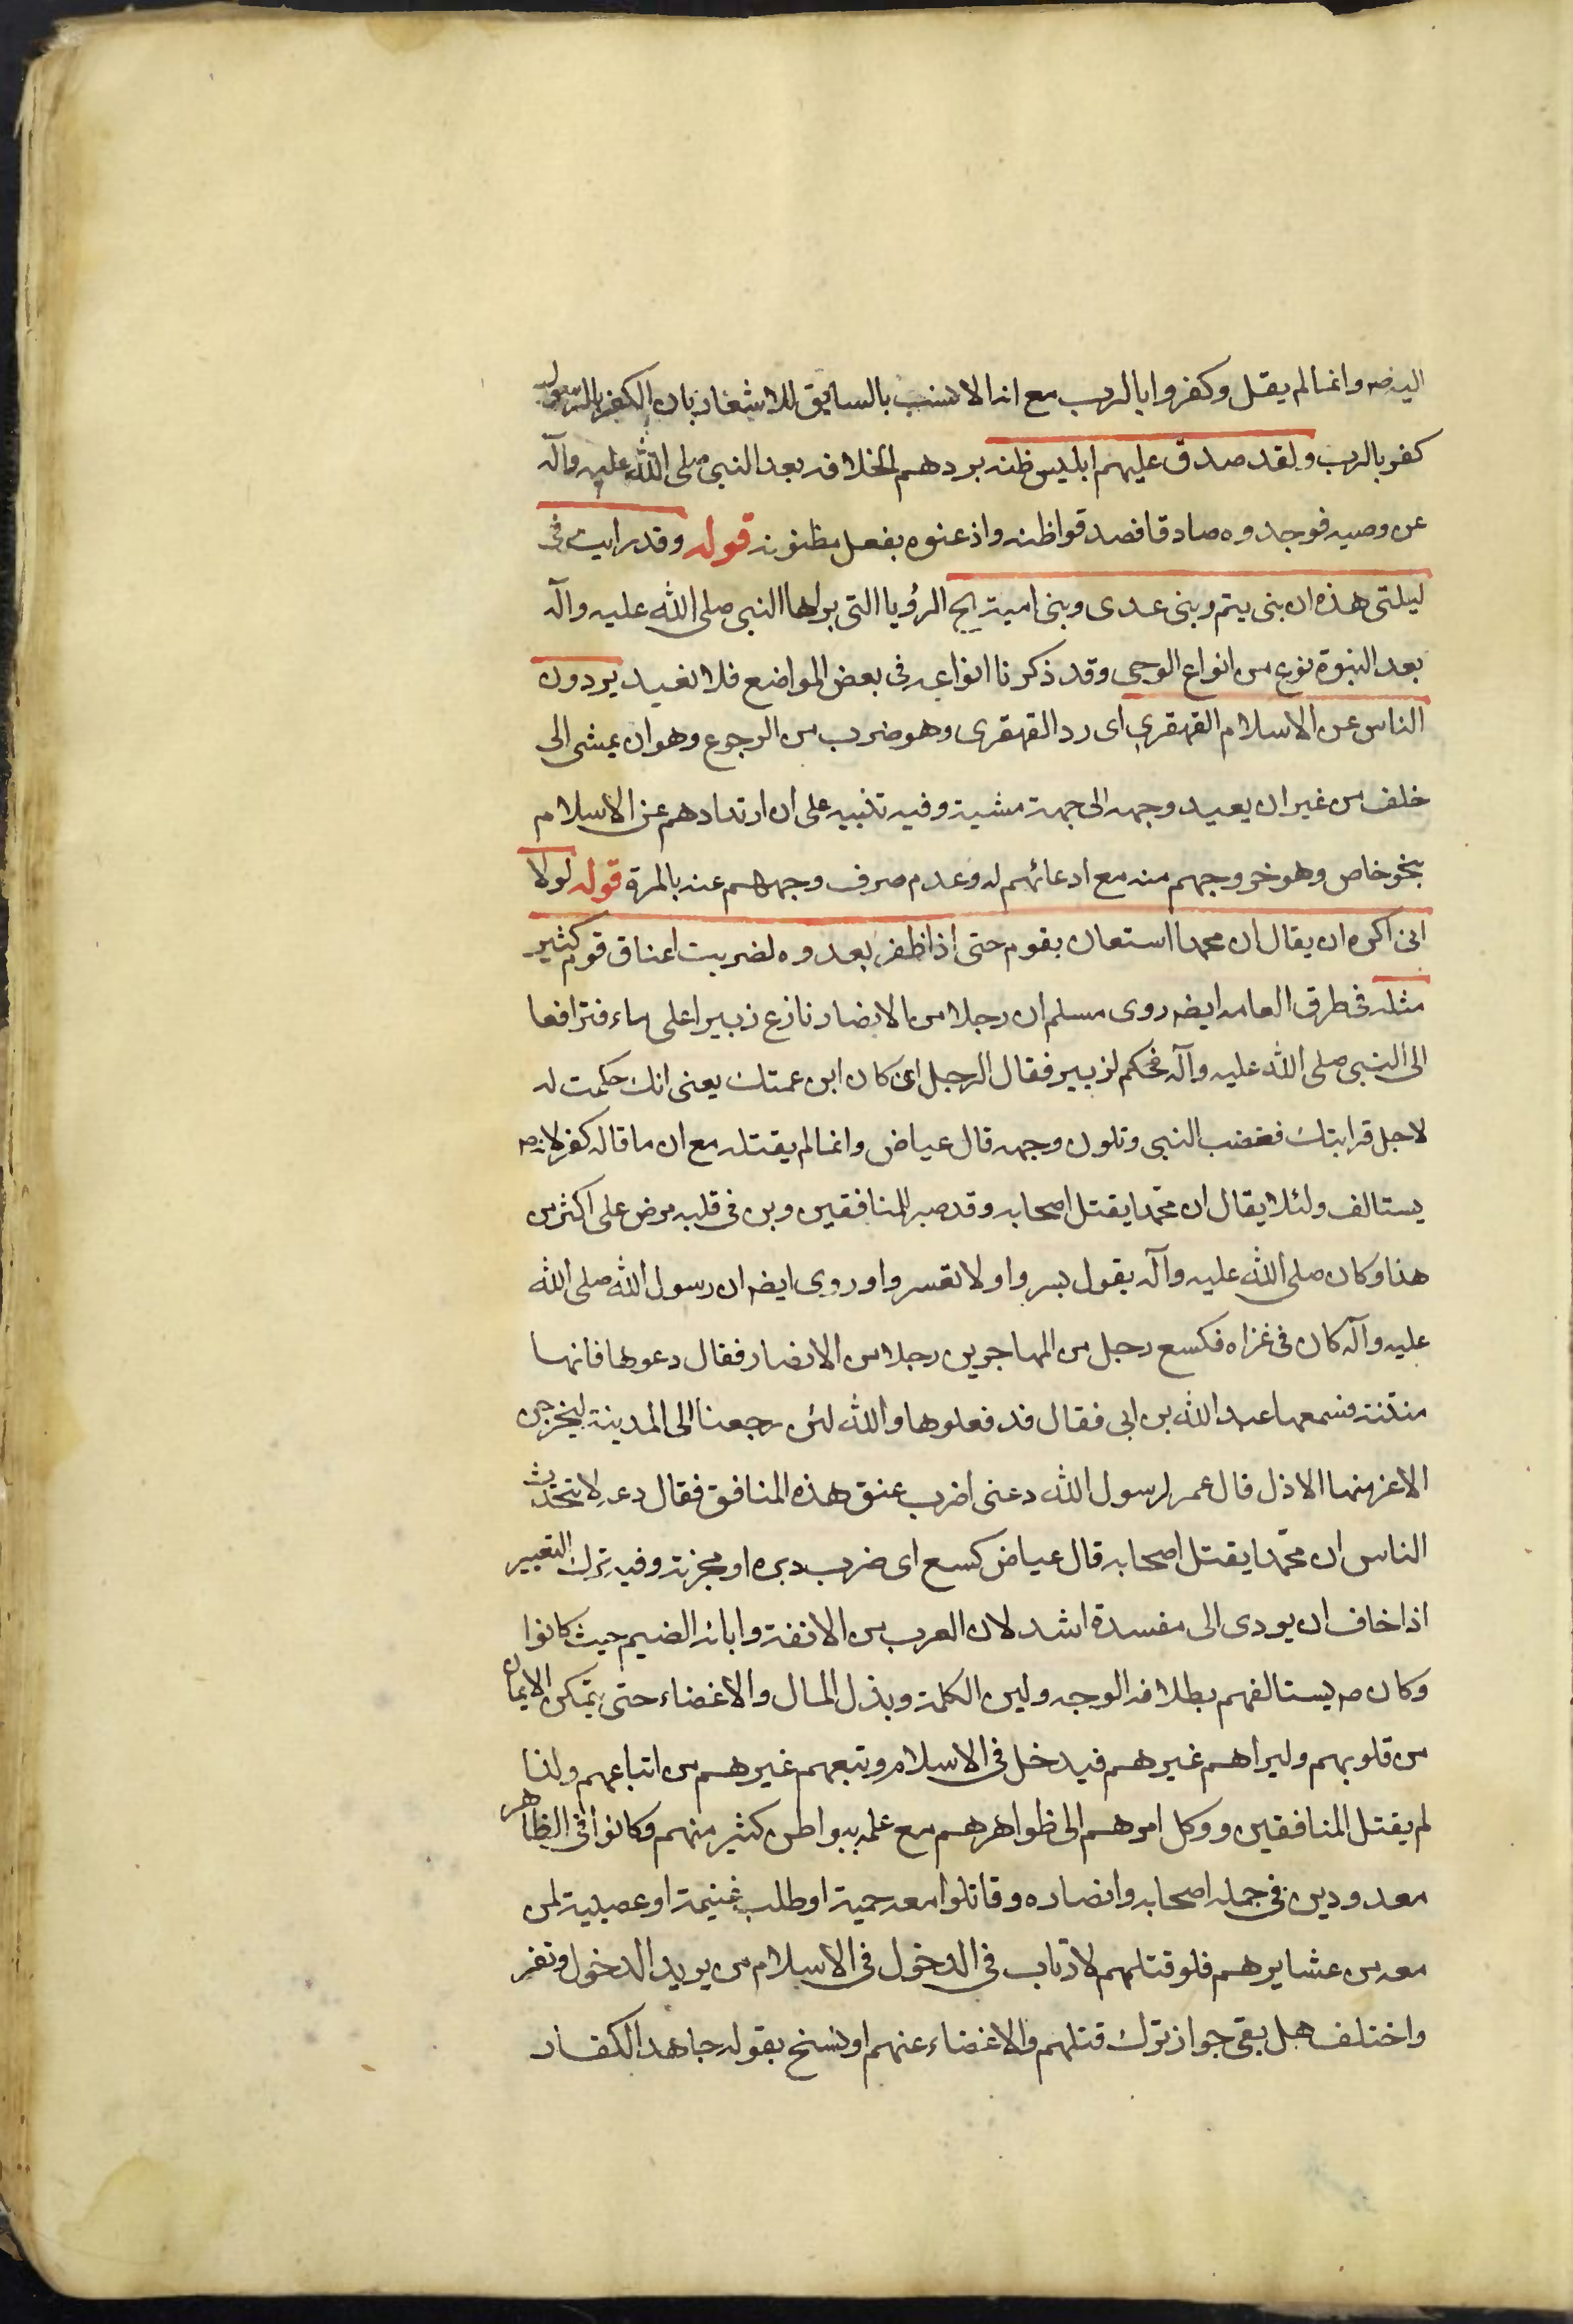 اليه ص وانما لم يقل وكفروا بالرب مع انه الانسب بالسابق للاشعار بان الكفر بالرسول
كفر بالرب ولقد صدق عليهم ابليس ظنه بردهم الخلافه بعد النبي صلى الله عليه وآله
عن وصيه فوجدوه صادقا فصدقوا ظنه واذعنوه بفعل مظنونه قوله وقد رايت في
ليلتي هذه ان بني يتم وبني عدى وبني امية الخ الرؤيا التي يراها النبي صلى الله عليه وآله
بعد النبوة نوع من انواع الوحى وقد ذكرنا انواعه في بعض المواضع فلا نعيد يردون
الناس عن الاسلام القهقرى اى رد القهقرى وهو ضرب من الرجوع وهو ان يمشى الى
خلف من غير ان يعيد وجهه الى جهة مشيه وفيه تنبيه على ان ارتدادهم عن الاسلام
بنحو خاص وهو خروجهم منه مع ادعائهم له وعدم صرف وجههم عنه بالمرة قوله لولا
انى اكره ان يقال ان محمدا استعان بقوم حتى اذا ظفر بعدوه لضربت اعناق قوم كثير
مثله في طرق العامه ايضه روى مسلم ان رجلا من الانصار نازع زبيرا على ماء فترافعا
الى النبي صلى الله عليه وآله فحكم لزبير فقال الرجل ان كان ابن عمتك يعنى انك حكمت له
لاجل قرابتك فغضب النبي وتلون وجهه قال عياض وانما لم يقتله مع ان ما قاله كفر لانه
يستالف ولئلا يقال ان محمدا يقتل اصحابه وقد صبر للمنافقين ومن في قلبه مرض على اكثر من
هذا وكان صلى الله عليه وآله يقول يسروا ولا تعسروا وروى ايضه ان رسول الله صلى الله
عليه وآله كان في غزاه فكسع رجل من المهاجرين رجلا من الانصار فقال دعوها فانها
منتنة فسمعها عبد الله بن ابى فقال قد فعلوها والله لئن رجعنا الى المدينة ليخرجن
الاعز منها الاذل قال عمر لرسول الله دعنى اضرب عنق هذه المنافق فقال دعه لا يتحدث
الناس ان محمدا يقتل اصحابه قال عياض كسع اى ضرب دبره او عجزته وفيه ترك التغيير
اذا خاف ان يودى الى مفسدة اشد لان العرب من الانفة وابائه الضيم حيث كانوا
وكان ص يستالفهم بطلاقه الوجه ولين الكلمة وبذل المال والاغضاء حتى يتمكن الايمان
من قلوبهم وليراهم غيرهم فيدخل في الاسلام ويتبعهم غيرهم من اتباعهم ولذا
لم يقتل المنافقين ووكل امرهم الى ظواهرهم مع علمه ببواطن كثير منهم وكانوا في الظاهر
معدودين في جمله اصحابه وانصاره وقاتلوا معه حمية او طلب غنيمة او عصبية لمن
معه من عشايرهم فلو قتلهم لارتاب في الدخول في الاسلام من يريد الدخول ونفر
واختلف هل بقى جواز ترك قتلهم والاغضاء عنهم او نسخ بقوله جاهد الكفار